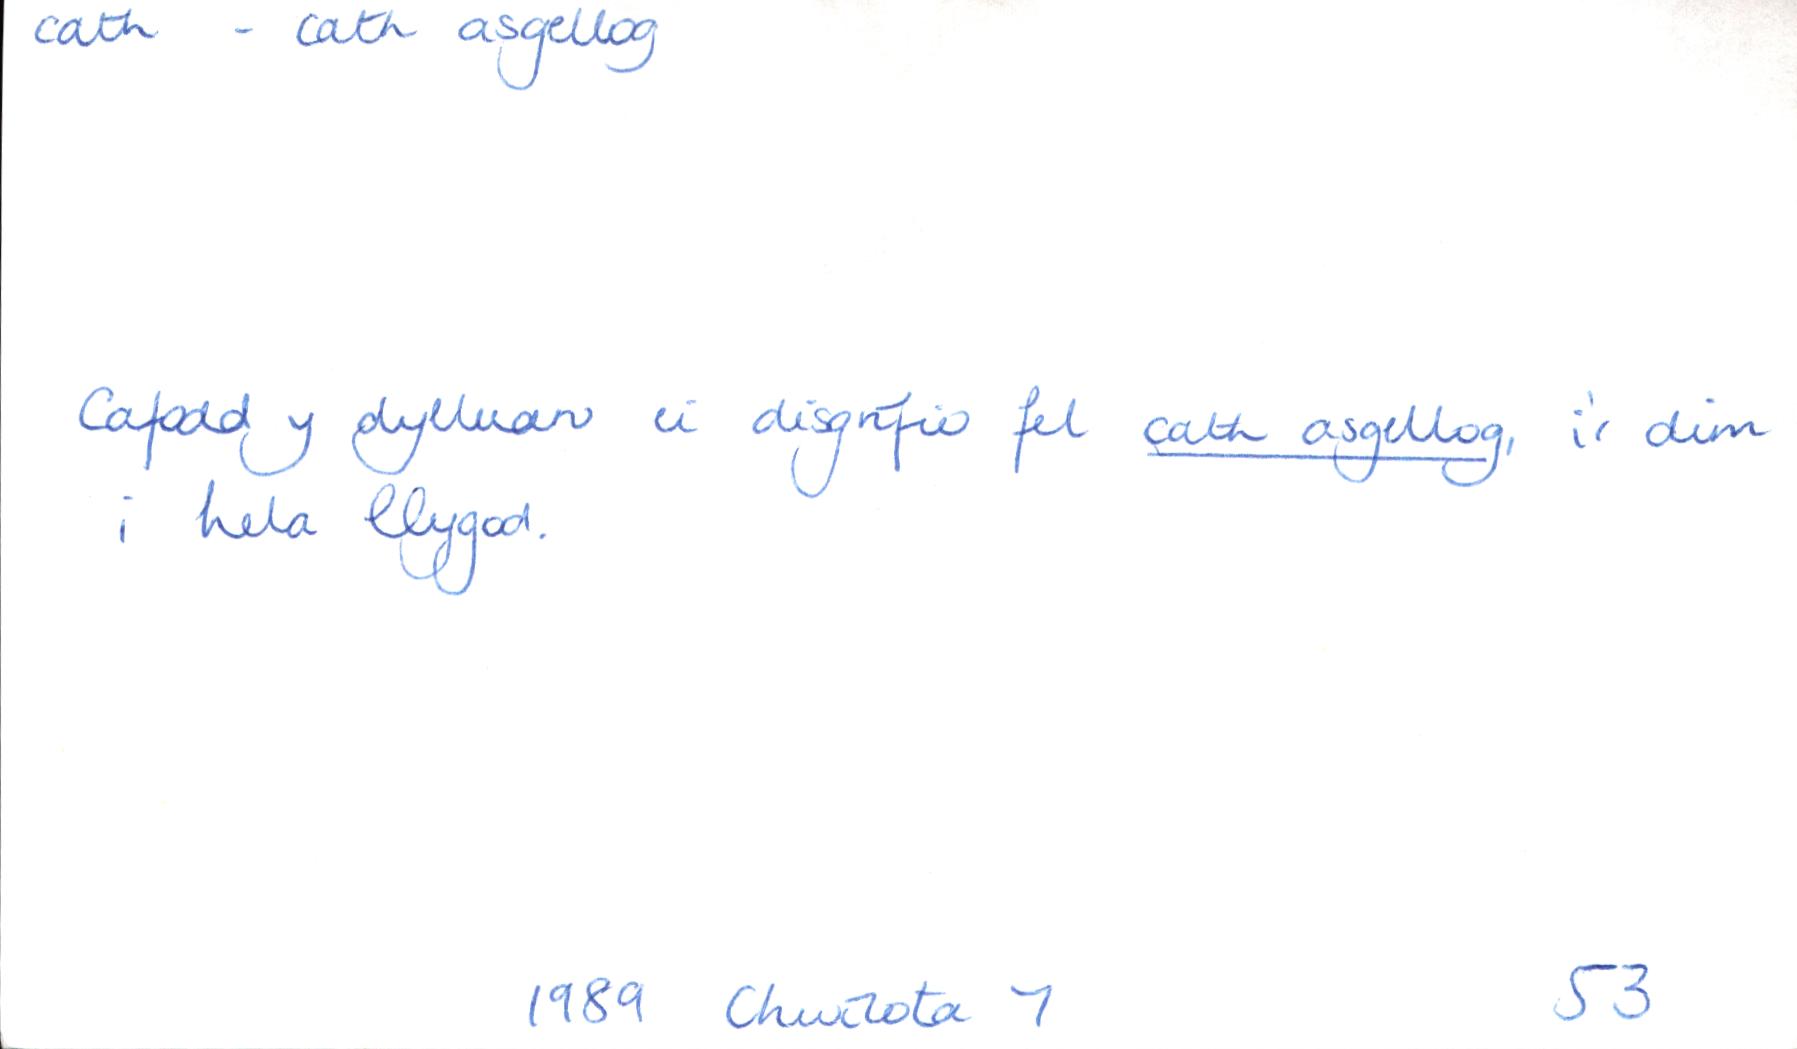 cath - cath asgellog
Cafodd y dylluan ei disgrifio fel cath asgellog, i'r dim
i hela llygod.
1989 Chwilota 7 53